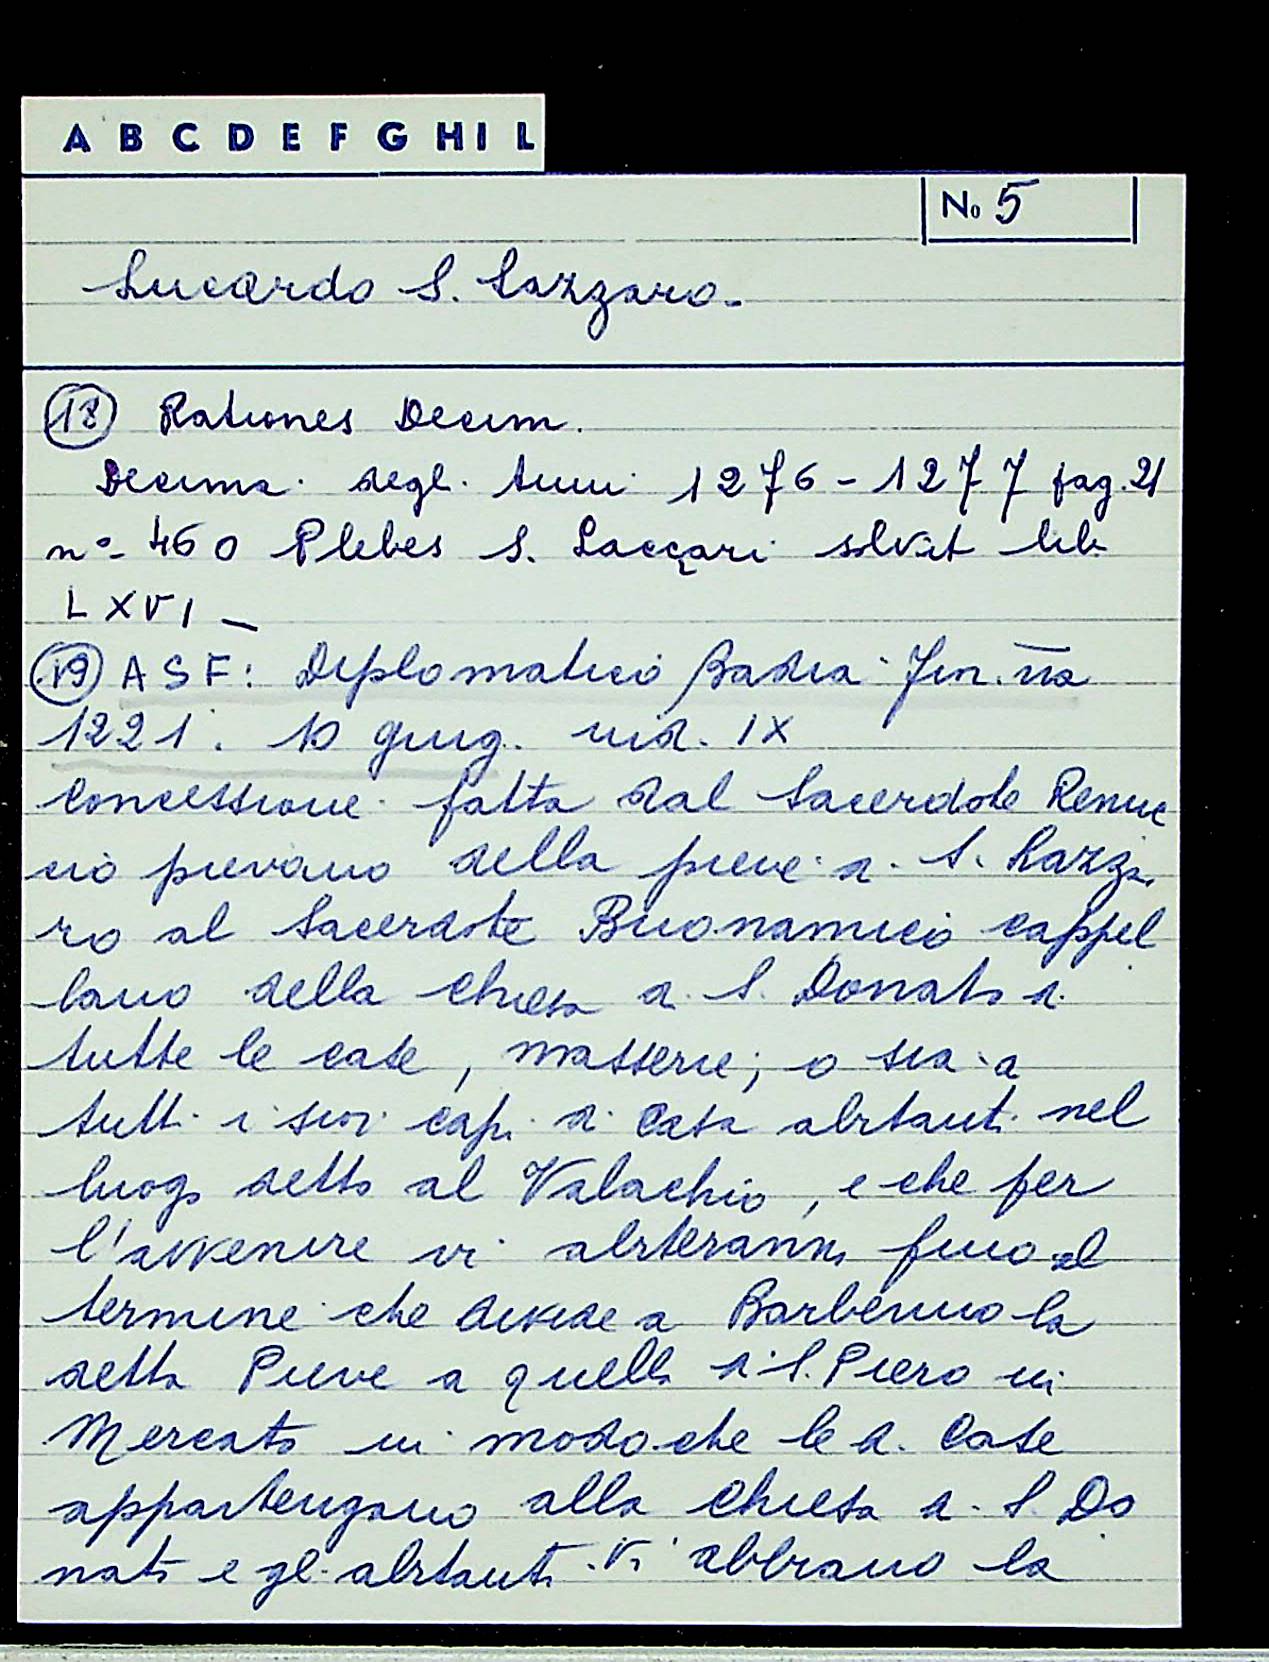 A B C D E F G H I L
No 5
Lucardo S. Lazzaro.
18 Rationes Decim.
Decima degli Anni 1276-1277 pag. 21
n° 460 Plebes S. Lacçari solvit lib.
LXVI
19 ASF: Diplomatico Badia Fior.na
1221. 10 giug. ind. IX
Concessione fatta dal Sacerdote Renuc
cio pievano della pieve di S. Lazza
ro al Sacerdote Buonamico cappel
lano della chiesa di S. Donato di
tutte le case, masserie, o sia di
tutti i suoi capi di casa abitanti nel
luogo detto al Valachio, e che per
l'avvenire vi abiteranno fino al
termine che divide a Barberino la
detta Pieve a quella di S. Piero in
Mercato in modo che le d. Case
appartengano alla chiesa di S. Do
nato e gli abitanti vi abbiano la